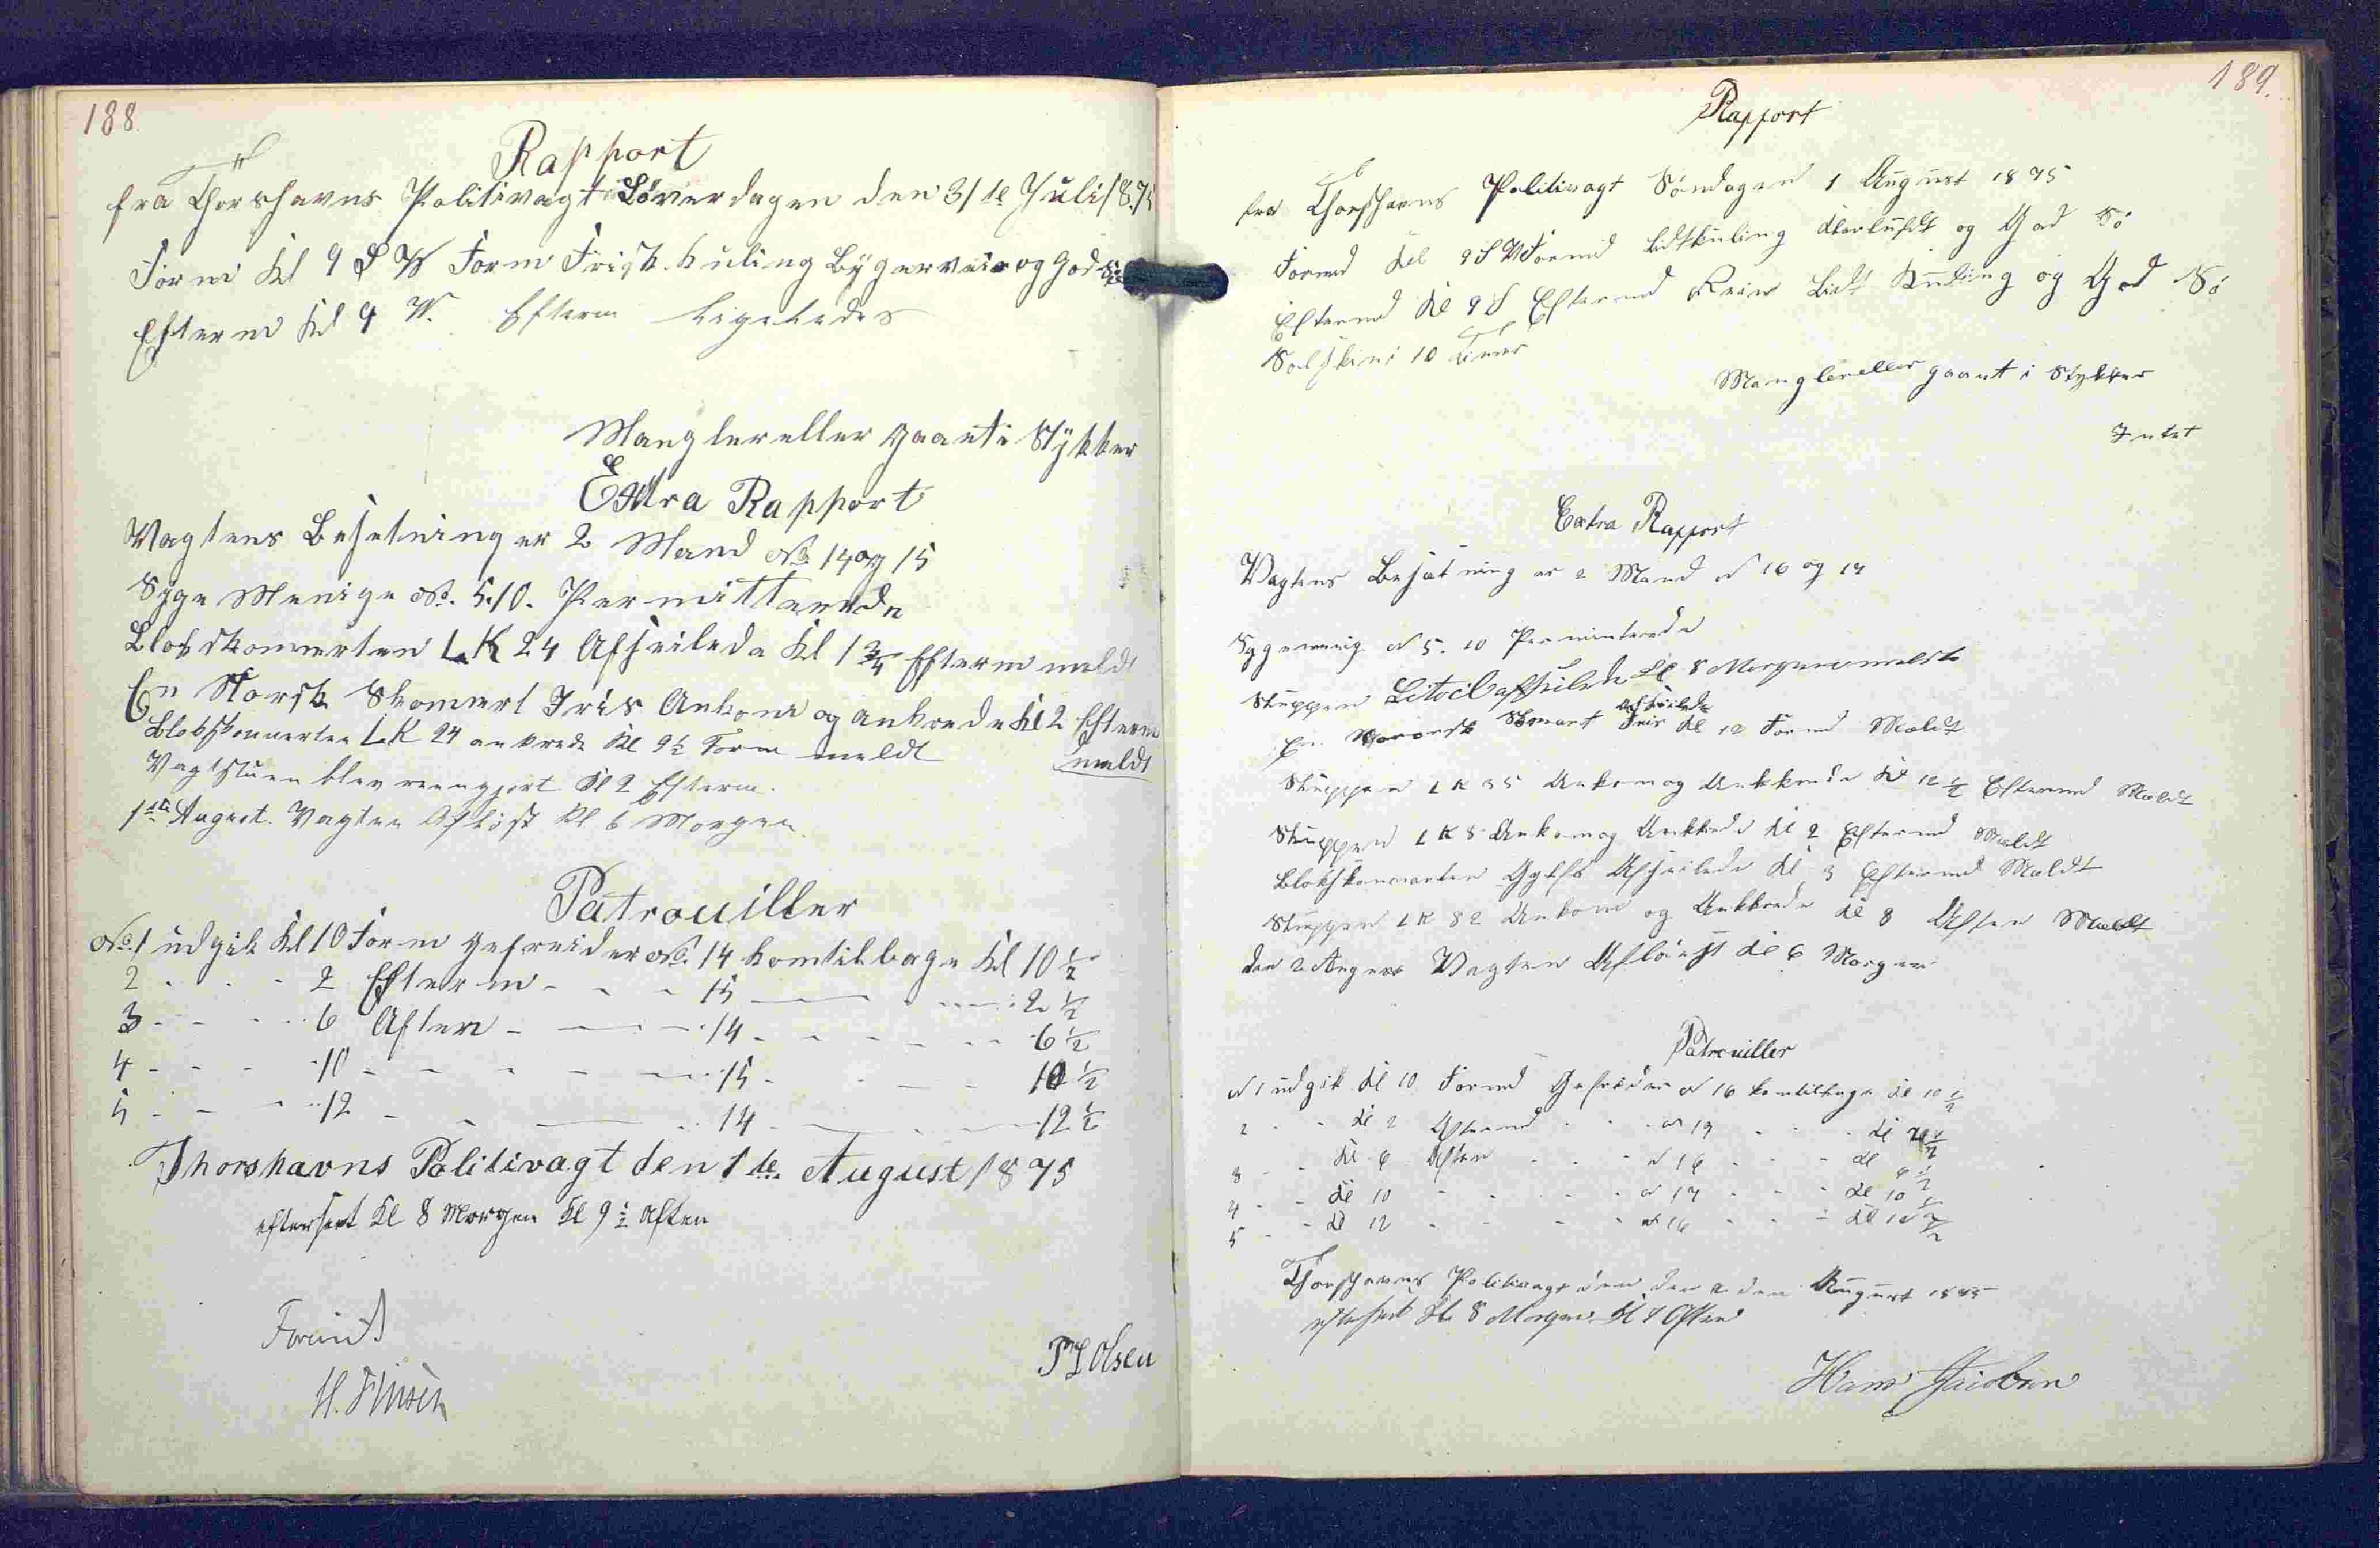 188
Rapport
fra Thorshavns Politivagt Löverdagen den 31te Juli 1875
Form Kl 9 S W Form Frisk Kuling Bygerveir og God Sö
Efterm Kl 9 W. Efterm Ligeledes
Mangler eller gaaet i Stykker
Extra Rapport
Vagtens Besetning er 2 Mand No 14 og 15
Syge Menige No. 5. 10. Permitterede
Slobskonnerten L.K 24 Afseilede Kl 1 3/4 Efterm meldt
En Norsk Skonnert Iris Ankom og ankrede Kl 2 Efterm
meldt
Slobskonnerten L.K 24 ankrede Kl 9 1/2 Form meldt
Vagtstuen blev reengjort Kl 2 Efterm.
1ste August. Vagten Aflöst Kl 6 Morgen.
Patrouiller
No. 1 udgik Kl 10 Form Gefreider No. 14 kom tilbage Kl 10 1/2
2 - - - 2 Efterm - - - 15 - - - 2 1/2
3 - - - 6 Aften - - - 14 - - - 6 1/2
4 - - - 10 - - - 15 - - - 10 1/2
5 - - - 12 - - - 14 - - - 12 1/2
Thorshavns Politivagt den 1te August 1875
efterseet Kl 8 Morgen Kl 9 1/2 Aften
P Olsen
189.
Rapport
fra Thorshavns Politivagt Söndagen 1 August 1875
Formd Kl 9 S W Formd Lidt Kuling Klarluft og God Sö
Eftermd Kl 9 S Eftermd Lidt Kuling og God Sö
Solskin i 10 Timer
Mangler eller gaaet i Stykker
Intet
Extra Rapport
Vagtens Besætning er 2 Mand No 16 og 17
Syge menig No 5. 10 Permiterede
Sluppen afseilede Kl 8 Morgen meldt
afseilede
En Norsk Skonnert Iris Kl 12 Formd Meldt
Sluppen L K 35 Ankom og Ankkrede Kl 12 1/2 Eftermd Meldt
Sluppen L K 8 Ankom og Ankkrede Kl 2 Eftermd Meldt
Slobskonnerten Afseilede Kl 3 Eftermd Meldt
Sluppen L K 82 Ankom og Ankkrede Kl 8 Aften Meldt
den 2 August Vagten Aflöst Kl 6 Morgen
Patrouiller
No 1 udgik Kl 10 Formd Gefreider No 16 kom tilbage Kl 10 1/2
2 - - Kl 2 Eftermd - - No 17 - - Kl 2 1/2
3 - - Kl 6 Aften - - No 16 - - Kl 6 1/2
4 - - Kl 10 - - No 17 - - Kl 10 1/2
5 - - Kl 12 - - No 16 - - Kl 12 1/2
Thorshavns Politivagt den 2 den August 1875
efterseet Kl 8 Morgen Kl 9 Aften
Hans Jacobsen